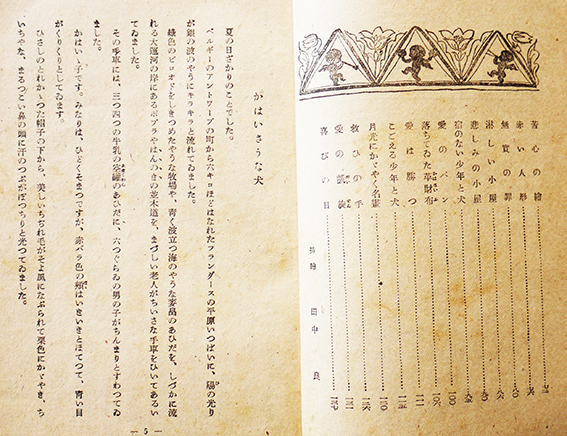 苦心の繪
赤い人形
無實の罪
淋しい小屋
悲しみの小屋
宿のない少年と犬
愛のパン
落ちてゐた革財布
愛は勝つ
こごえる少年と犬
月光にかゞやく名畫
救ひの手
愛の凱旋
喜びの日
揷繪 田中良
かはいさうな犬
夏の日ざかりのことでした。
ベルギーのアントワープの町から六キロほどはなれたフランダースの平原いつぱいに、陽の光り
が銀の波のやうにキラキラと流れてゐました。
綠色のビロオドをしきつめたやうな牧場や、青く波立つ海のやうな麥畠のあひだを、しづかに流
れる大運河の岸にあるポプラやはんのきの並木道を、まづしい老人がちいさな手車をひいてあるい
てゐました。
その手車には、三つ四つの牛乳の空罐のあひだに、六つぐらゐの男の子がちんまりとすわつてゐ
ました。
かはいゝ子です。みなりは、ひどくそまつですが、赤バラ色の頰はいきいきとほてつて、青い目
がくりくりとしてゐます。
ひさしのとれかゝつた帽子の下から、美しいちゞれ毛がそよ風になぶられて栗色にかゞやき、ち
いちやな、まるつこい鼻の頭に汗のつぶがぽつちりと光つてゐました。
— 5 —